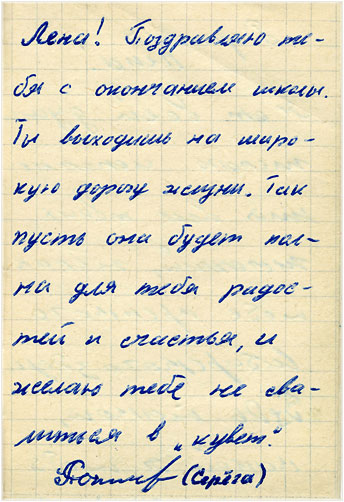 Лена! Поздравляю те-
бя с окончанием школы.
Ты выходишь на широ-
кую дорогу жизни. Так
пусть она будет пол-
на для тебя радос-
тей и счастья, и
желаю тебе не сва-
литься в „кувет."
(Серёга)